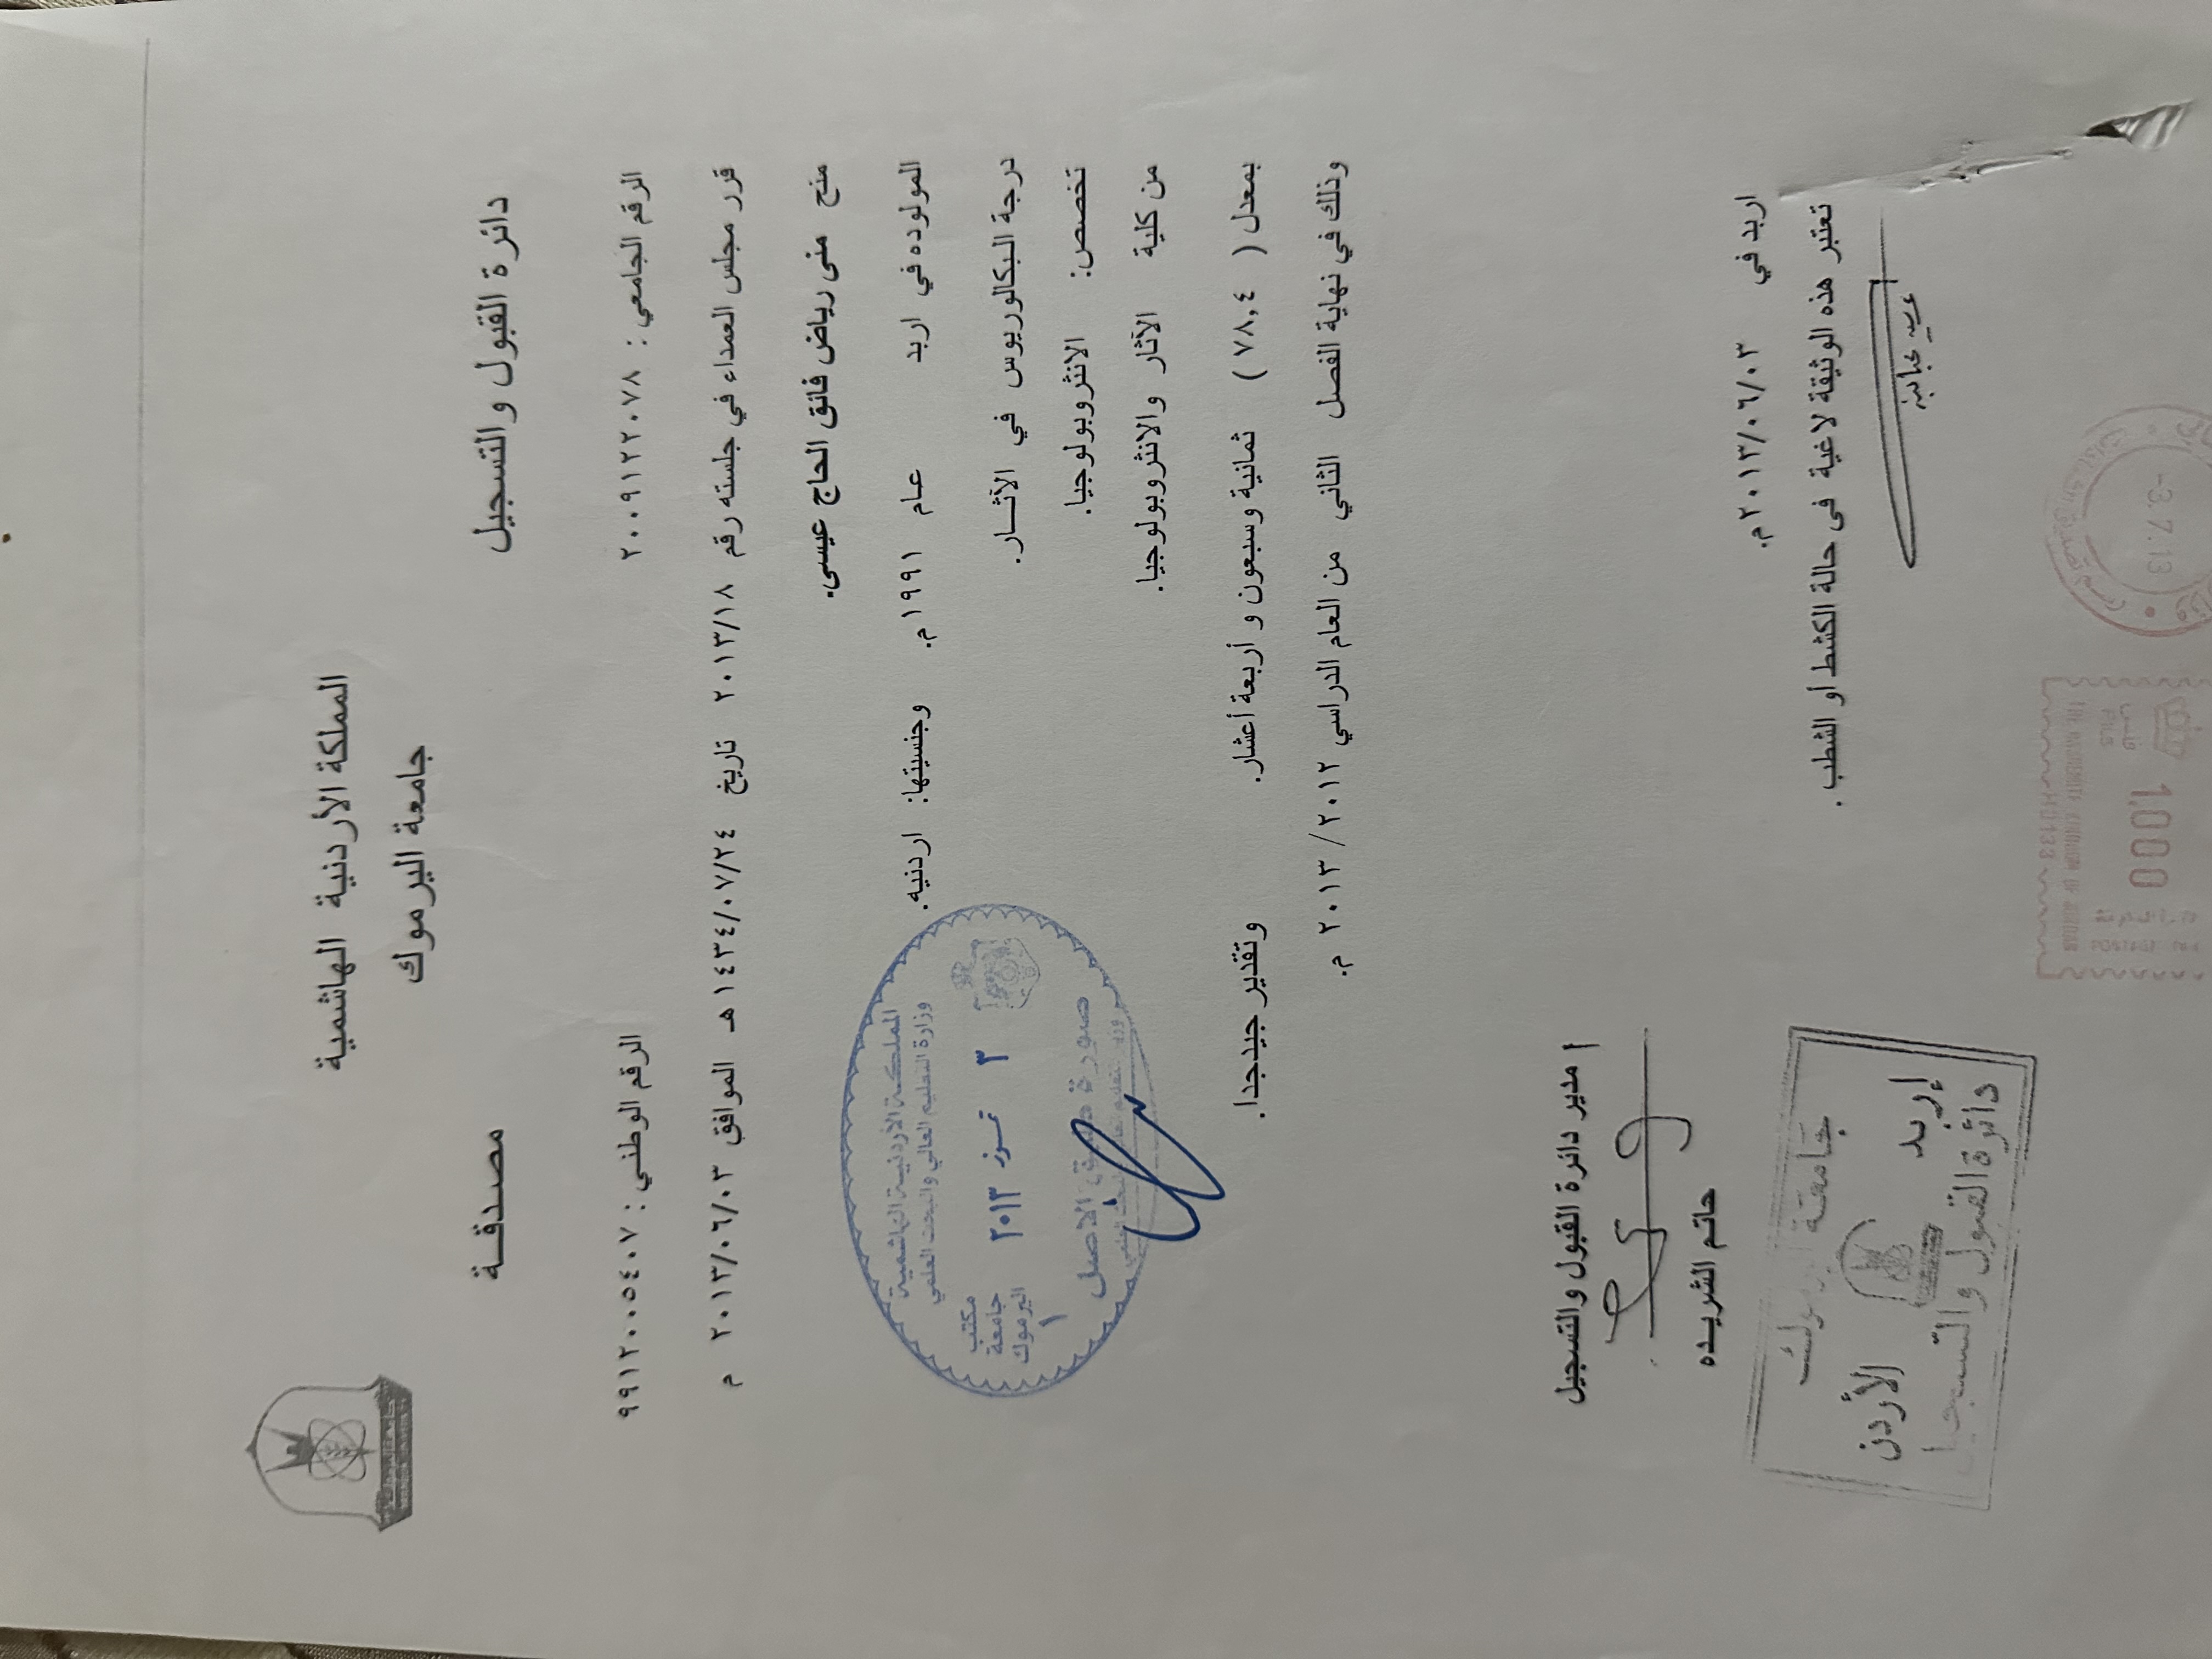 المملكة الأردنية الهاشمية
جامعة اليرموك
دائرة القبول والتسجيل
مصدقة
الرقم الجامعي : ٢٠٠٩١٢٢٠٧٨
الرقم الوطني : ٩٩١٢٠٠٥٤٠٧
قرر مجلس العمداء في جلسته رقم ٢٠١٣/١٨ تاريخ ١٤٣٤/٠٧/٢٤ هـ الموافق ٢٠١٣/٠٦/٠٣ م
منح منى رياض فائق الحاج عيسى.
المولوده في اربد عام ١٩٩١م. وجنسيتها: اردنيه.
درجة البكالوريوس في الآثـار.
تخصص: الانثروبولوجيا.
من كلية الآثار والانثروبولوجيا.
بمعدل ( ٧٨,٤ ) ثمانية وسبعون و أربعة أعشار. وتقدير جيدجدا.
وذلك في نهاية الفصل الثاني من العام الدراسي ٢٠١٢ / ٢٠١٣ م.
المملكة الأردنية الهاشمية
وزارة التعليم العالي والبحث العلمي
مكتب
جامعة
اليرموك
١
٣ تموز ٢٠١٣
صورة طبق الاصل
مدير دائرة القبول والتسجيل
حاتم الشريده
اربد في ٢٠١٣/٠٦/٠٣م.
تعتبر هذه الوثيقة لاغية فى حالة الكشط أو الشطب .
جامعة اليرموك
إربد الأردن
دائرة القبول والتسجيل
-3.7.13
فلس
FILS
1,000
THE HASHEMITE KINGDOM OF JORDAN